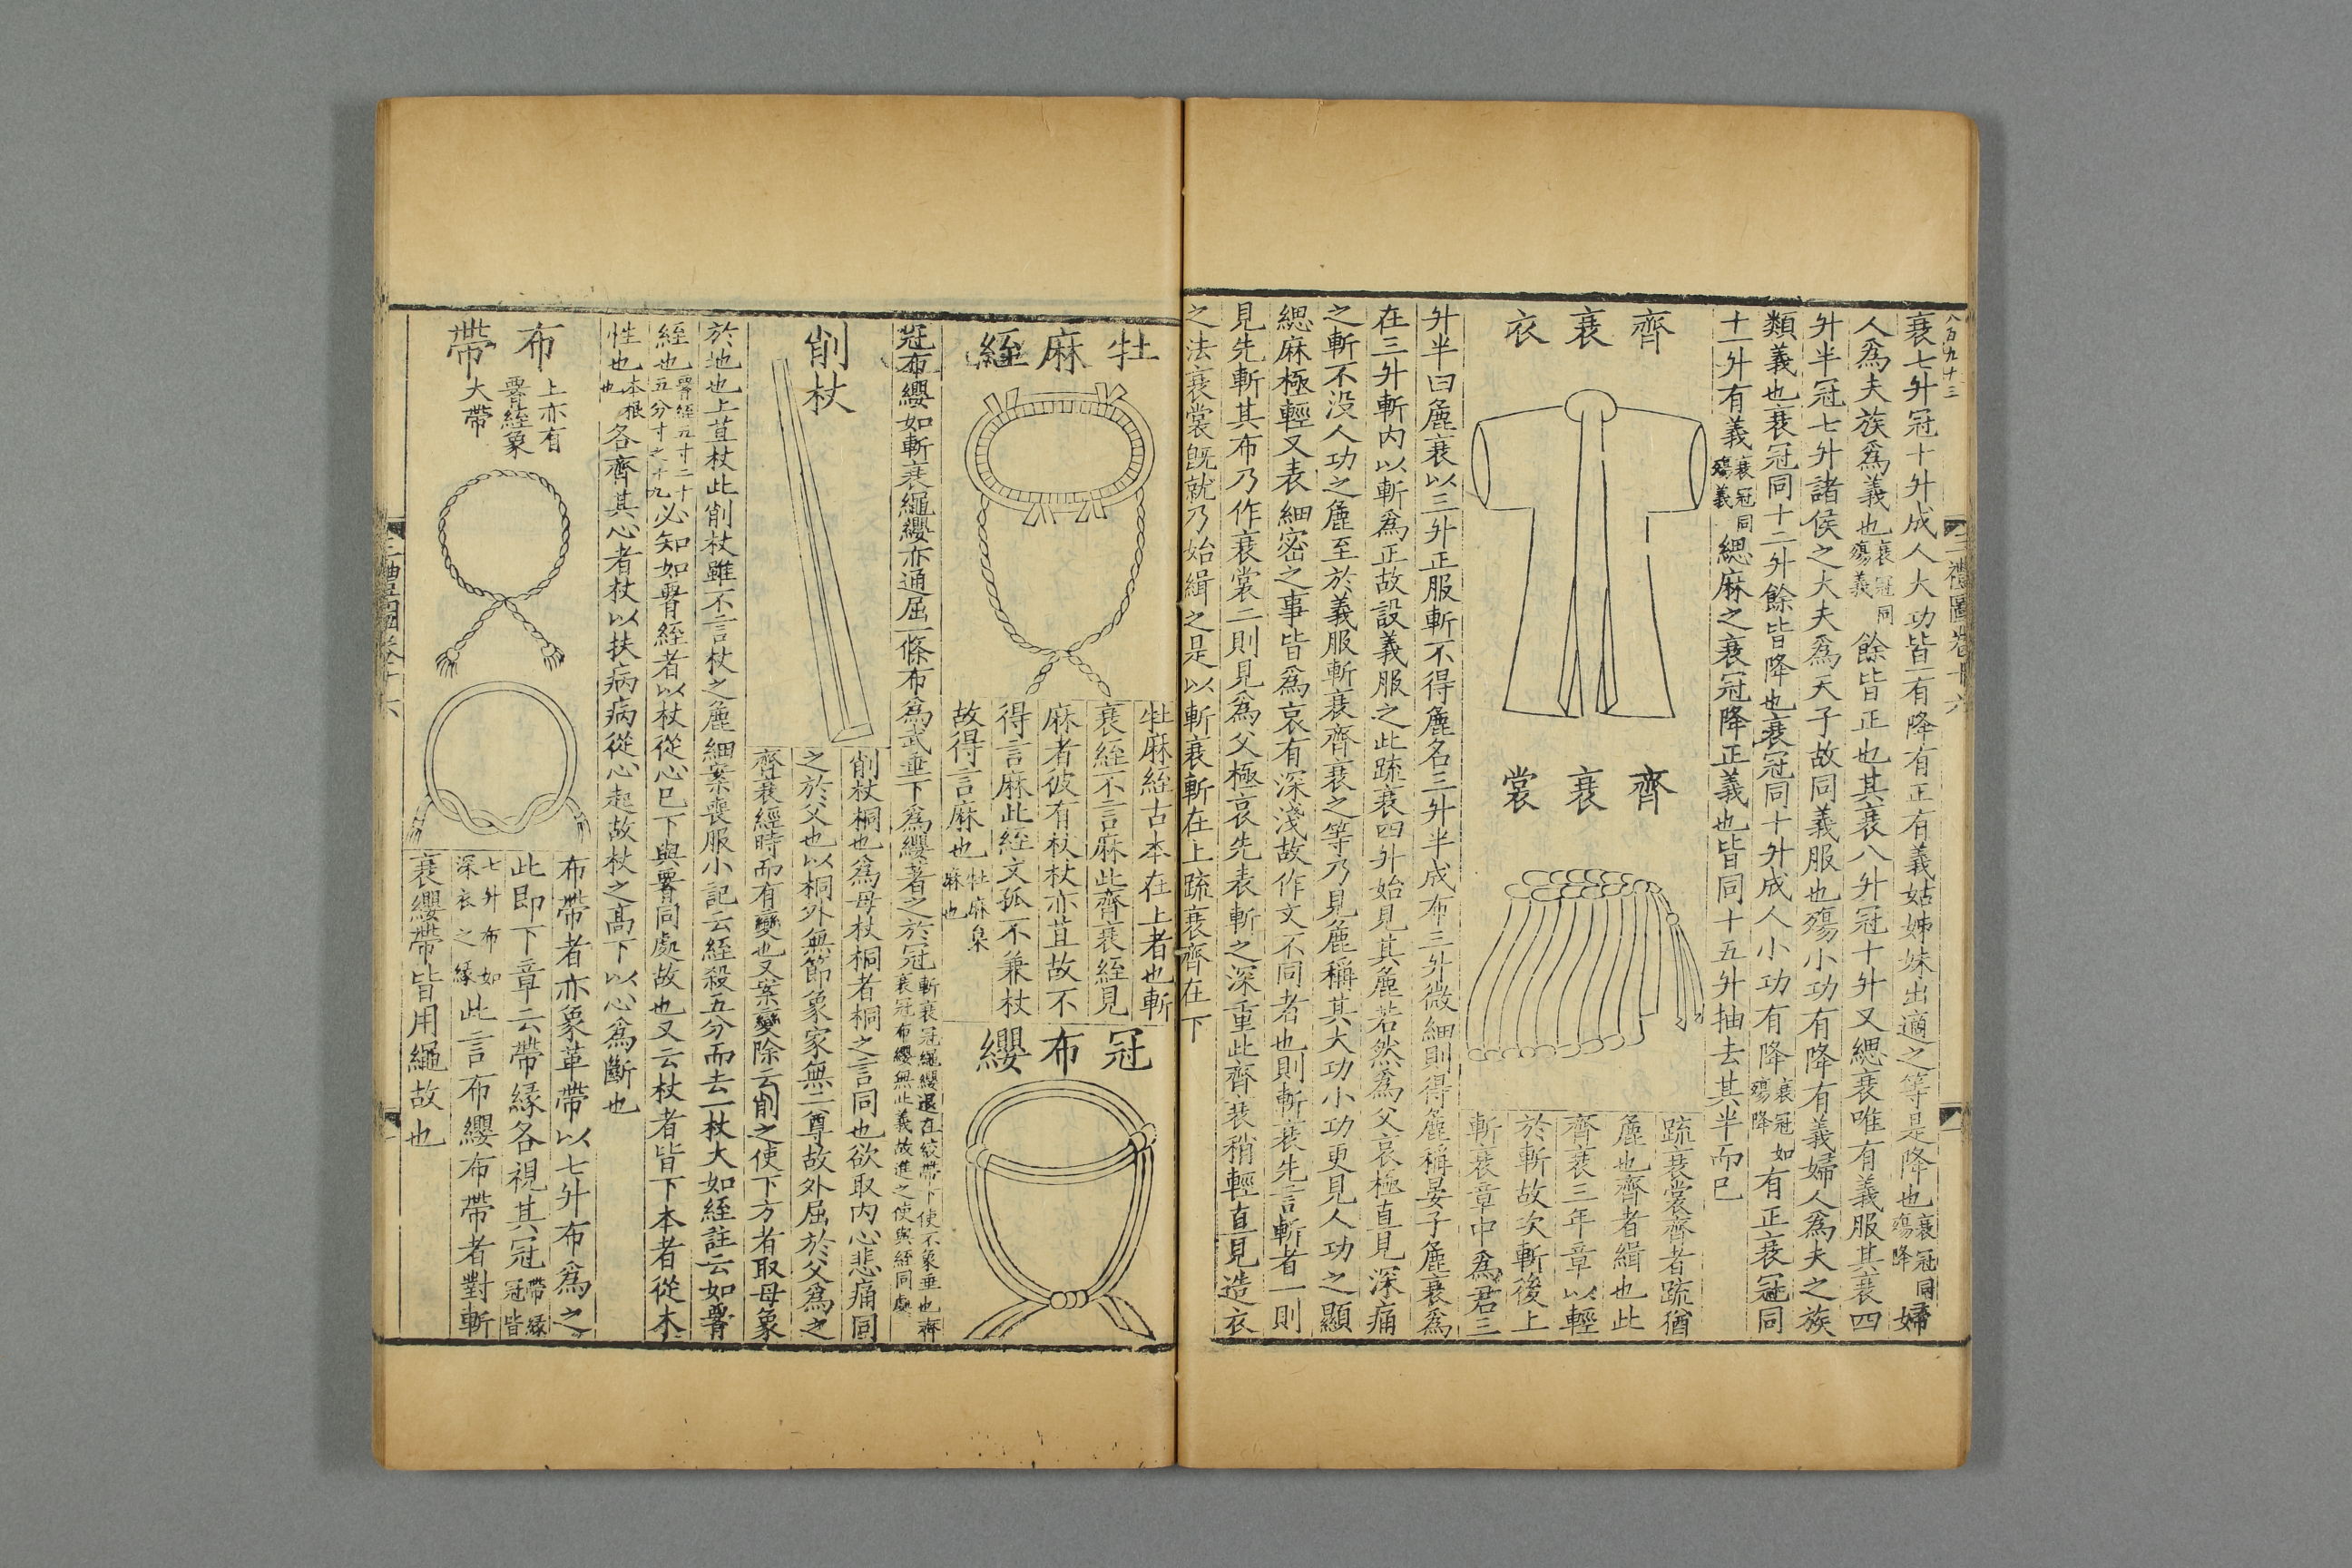 八百九十三
三禮圖卷十六
衰七升冠十升成人大功皆有降有正有義姑姊妹出適之等是降也衰冠同殤降婦
人爲夫族爲義也衰冠同殤義餘皆正也其衰八升冠十升又緦衰唯有義服其衰四
升半冠七升諸侯之大夫爲天子故同義服也殤小功有降有義婦人爲夫之族
類義也衰冠同十二升餘皆降也衰冠同十升成人小功有降衰冠如殤降有正衰冠同
十一升有義衰冠同殤義緦麻之衰冠降正義也皆同十五升抽去其半而已
齊衰衣
齊衰裳
疏衰裳齊者疏猶
麄也齊者緝也此
齊衰三年章以輕
於斬故次斬後上
斬衰章中爲君三
升半曰麄衰以三升正服斬不得麄名三升半成布三升微細則得麄稱晏子麄衰爲
在三升斬内以斬爲正故設義服之此疏衰四升始見其麄若然爲父哀極直見深痛
之斬不没人功之麄至於義服斬衰齊衰之等乃見麄稱其大功小功更見人功之顯
緦麻極輕又表細密之事皆爲哀有深淺故作文不同者也則斬衰先言斬者一則
見先斬其布乃作衰裳二則見爲父極哀先表斬之深重此齊衰稍輕直見造衣
之法衰裳旣就乃始緝之是以斬衰斬在上疏衰齊在下
牡麻絰
牡麻絰古本在上者也斬
衰絰不言麻此齊衰絰見
麻者彼有杖杖亦苴故不
得言麻此絰文孤不兼杖
故得言麻也牡麻枲麻也
冠布纓
冠布纓如斬衰繩纓亦通屈一條布爲武垂下爲纓著之於冠斬衰冠繩纓退在絞帶下使不象垂也齊衰冠布纓無此義故進之使與絰同處
削杖
削杖桐也爲母杖桐者桐之言同也欲取内心悲痛同
之於父也以桐外無節象家無二尊故外屈於父爲之
齊衰經時而有變也又案變除云削之使下方者取母象
於地也上苴杖此削杖雖不言杖之麄細案喪服小記云絰殺五分而去一杖大如絰註云如腰
絰也腰絰五寸二十五分寸之十九必知如腰絰者以杖從心已下與腰同處故也又云杖者皆下本者從木
性也本根也各齊其心者杖以扶病病從心起故杖之高下以心爲斷也
布帶
上亦有腰絰象大帶
布帶者亦象革帶以七升布爲之
此即下章云帶緣各視其冠帶緣冠皆
七升布如深衣之緣此言布纓布帶者對斬
衰纓帶皆用繩故也
三禮圖卷十六